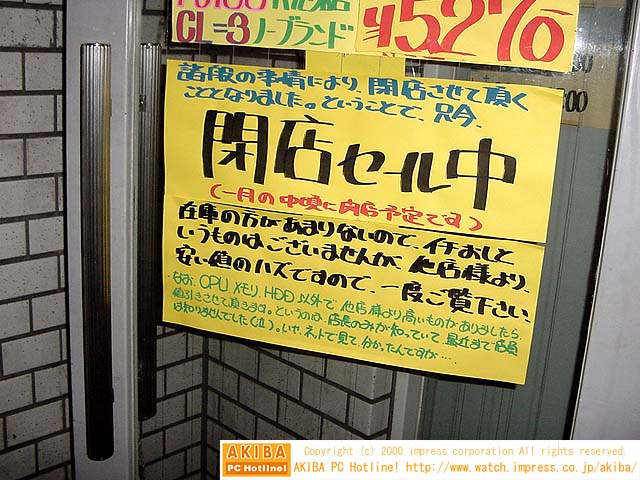 CL=3 ノーブランド
¥5,270
諸般の事情により、閉店させて頂く
こととなりました。ということで、只今、
閉店セール中
(一月の中頃に閉店予定です)
在庫の方があまりないので、イチおしと
いうものはございませんが、他店様より、
安い値のハズですので、一度ご覧下さい、
なお、CPU、メモリ、HDD以外で、他店様より高いものがありましたら、
値引きさせて頂きます。というのは、店長のみが知っていて、最近まで店員
は知りませんでした(泣)。いや、ネットで見て、分かったんですが…。
AKIBA
PC Hotline!
Copyright (c) 2000 impress corporation All rights reserved.
AKIBA PC Hotline! http://www.watch.impress.co.jp/akiba/